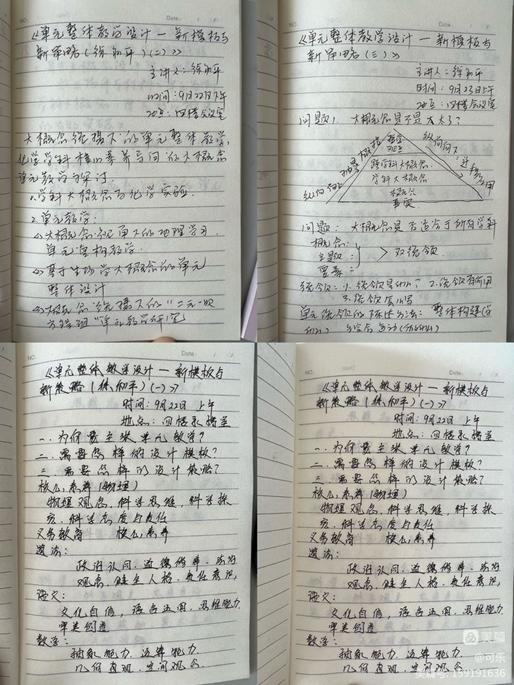 《单元整体教学设计 — 新模板与
新策略(徐和平)(二)》
主讲人:徐和平
时间:9月22日下午
地点:四楼会议室
大概念统摄下的单元整体教学,
化学学科核心素养导向的大概念
单元教学的探讨.
1.学科大概念与化学实验.
2.单元教学:
(1)大概念视角下的地理学习
单元重构教学.
(2)基于生物学大概念的单元
整体设计
(3)大概念统摄下的"二元一次
方程组"单元教学研究
《单元整体教学设计 — 新模板与
新策略(三)》
主讲人:徐和平
时间:9月23日上午
地点:四楼会议室
问题1:大概念是不是太大了?
跨学科大概念
学科大概念
问题: 大概念是否适合于所有学科
大概念:
主题:
要素:
双统领
统领:1.统领是什么? 2.统领有何用
3.统领怎么写
《单元整体教学设计 — 新模板与
新策略(徐和平)(一)》
时间:9月22日 上午
地点:四楼会议室
一.为何要主张单元教学?
二.需要怎样的设计模板?
三.需要怎样的设计策略?
核心素养(物理)
物理观念、科学思维、科学探
究、科学态度与责任
义务教育 核心素养
道法:
政治认同、道德修养、法治
观念、健全人格、责任意识.
语文:
文化自信,语言运用,思维能力,
审美创造
数学:
抽象能力、运算能力
几何直观、空间观念
《单元整体教学设计 — 新模板与
新策略(徐和平)(一)》
时间:9月22日 上午
地点:四楼会议室
一.为何要主张单元教学?
二.需要怎样的设计模板?
三.需要怎样的设计策略?
核心素养(物理)
物理观念、科学思维、科学探
究、科学态度与责任
义务教育 核心素养
道法:
政治认同、道德修养、法治
观念、健全人格、责任意识.
语文:
文化自信,语言运用,思维能力,
审美创造
数学:
抽象能力、运算能力
几何直观、空间观念
美篇
@可乐
美篇号:159191636